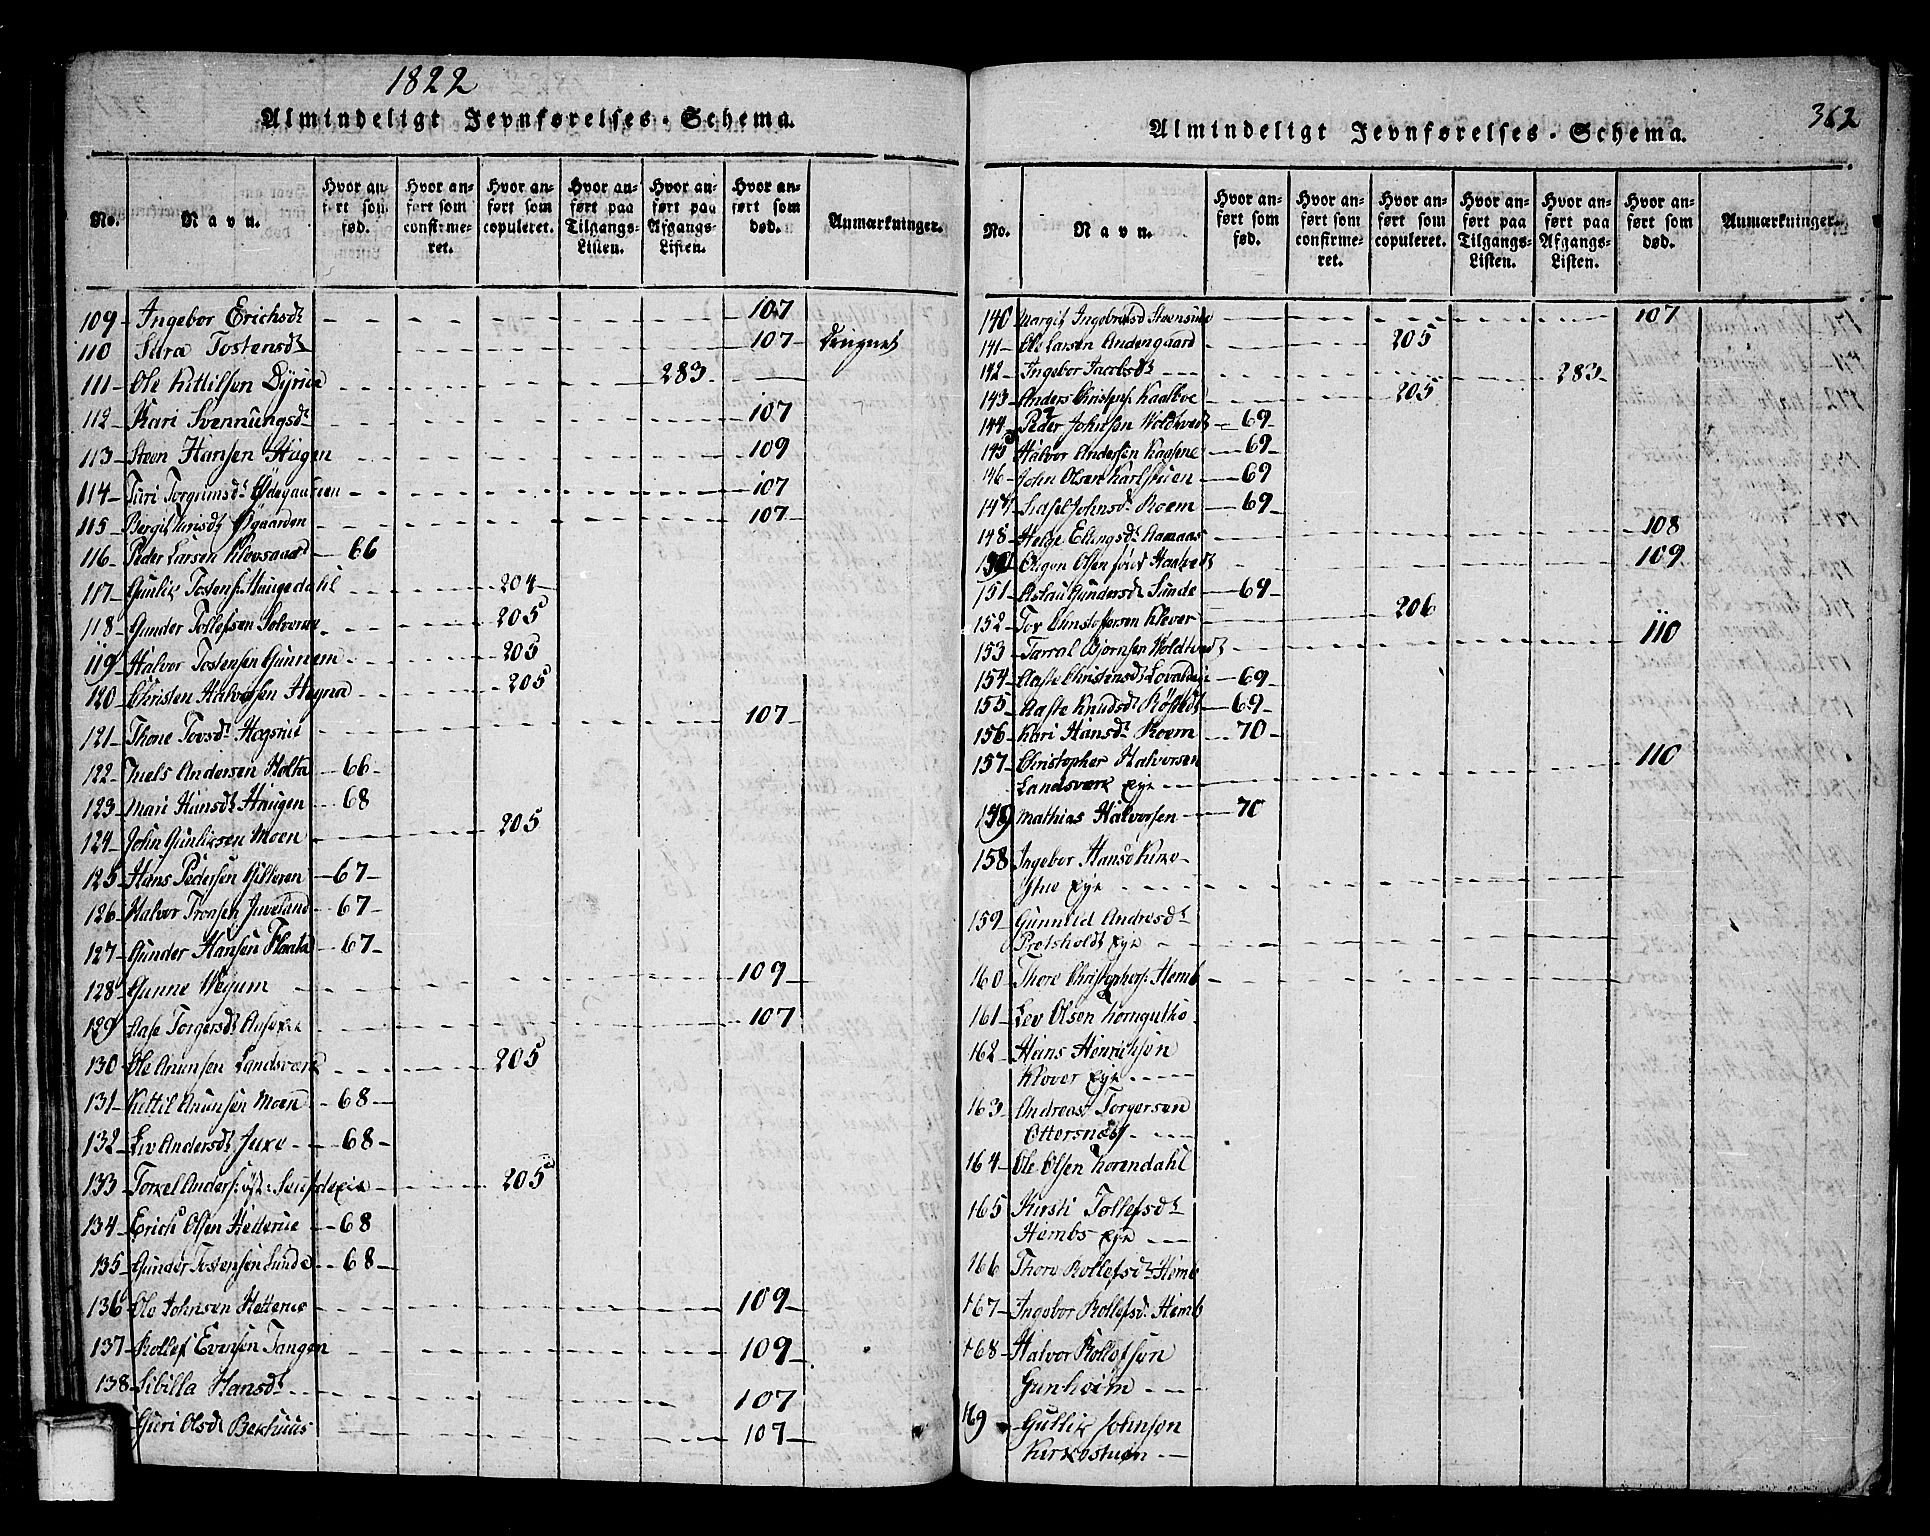 1822
Almindeligt Jevnførelses-Schema.
No. Navn. Hvor anført som fød. Hvor anført som confirmeret. Hvor anført som copuleret. Hvor anført paa Tilgangs-Listen. Hvor anført paa Afgangs-Listen. Hvor anført som død. Anmærkninger.
109 Ingebor Erichsdt 107
110 Sara Tostensdt 107
111 Ole Kittilsen Dyrud 283
112 Kari Svennungsdt 107
113 Steen Hansen Haugen 109
114 Turi Torgrimsdt Ødegaarden 107
115 Bergit Turisdt Øgaarden 107
116 Peder Larsen Klovsaad 66
117 Gunlik Tostens: Haugedahl 204
118 Gunder Tollefsen 205
119 Halvor Tostensen Gunnem 205
120 Christen Halvorsen Hegna 205
121 Thone Tovsdt Hogsrid 107
122 Niels Andersen Holta 66
123 Mari Hansdt Haugen 68
124 John Gunliksen Moen 205
125 Hans Pedersen Gilleren 67
126 Halvor Tronsen Juveland 67
127 Gunder Hansen Flaata 67
128 Gunne Vegum 109
129 Aase Torgersdt 107
130 Ole Anunsen Landsværk 205
131 Kittil Anunsen Moen 68
132 Liv Andersdt Juxe 68
133 Torkel Anders: 205
134 Erich Olsen Hetterue 68
135 Gunder Tostensen Lunde 68
136 Ole Johnsen Hetterue 109
137 Rollef Evensen Tangen 109
138 Sibilla Hansdt 107
Guri Olsdt Bekhuus 107
362
Almindeligt Jevnførelses-Schema.
No. Navn. Hvor anført som fød. Hvor anført som confirmeret. Hvor anført som copuleret. Hvor anført paa Tilgangs-Listen. Hvor anført paa Afgangs-Listen. Hvor anført som død. Anmærkninger.
140 Margit Ingebretsd 107
141 Ole Larsen Andengaard 205
142 Ingebor Jacobsdt 283
143 Anders Christens Kaasene 205
144 Peder Johnsen Woldtvedt 69
145 Halvor Andersen Kaasene 69
146 John Olsen Karlstuen 69
147 Sidsel Johnsdt Roem 69
148 Helge Ellingsdt Aamaas 108
Olsen 109
151 Aslau Gundersdt Sunde 69
152 Tov Christofersen Klever 206
153 Tarral Bjørnsen Woldtvedt 110
154 Aaste Christensdt 69
155 Aaste Knudsdt 69
156 Kari Hansdt Roem 70
157 Christopher Halvorsen
Landsværk eye 110
Mathias Halvorsen 70
158 Ingebor Hansd Kirke-
stue eye
159 Gunnild Andresdt
Prestholdt eye
160 Thore Christophers: Hemb
161 Lev Olsen
162 Hans Henrichsen
Klover eye
163 Andreas Torgersen
Ottersnæs
164 Ole Olsen Torendahl
165 Kirsti Tollefsdt
Hembs eye
166 Thore Rollefsdt Hemb
167 Ingebor Rollefsd: Hemb
168 Halvor Rollefsen
Gunheim
169 Gullik Johnsen
Kirkestuen